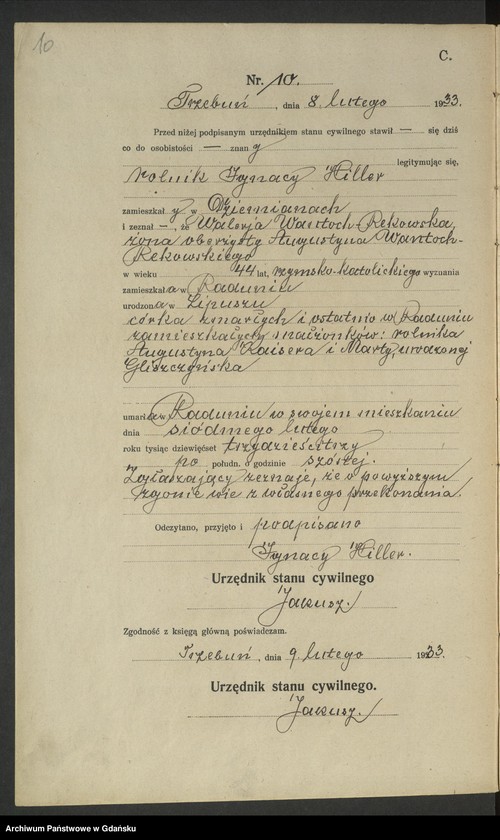 10
C.
Nr. 10.
Trzebuń, dnia 8. lutego 1933.
Przed niżej podpisanym urzędnikiem stanu cywilnego stawił — się dziś
co do osobistości — znany
legitymując się,
rolnik Ignacy Hiller
zamieszkały w Dziemianach
i zeznał —, że Walerja Wantoch-Rekowska,
żona oberżysty Augustyna Wantoch-
Rekowskiego
w wieku 44 lat, rzymsko-katolickiego wyznania
zamieszkała w Raduniu
urodzona w Lipuszu
córka zmarłych i ostatnio w Raduniu
zamieszkałych małżonków: rolnika
Augustyna Kaisera i Marty, urodzonej
Gliszczyńska
umarła w Raduniu w swojem mieszkaniu
dnia siódmego lutego
roku tysiąc dziewięćset trzydzieścitrzy
po połudn. o godzinie szóstej.
Zgłaszający zeznaje, że o powyższym
zgonie wie z własnego przekonania.
Odczytano, przyjęto i podpisano
Ignacy Hiller.
Urzędnik stanu cywilnego
Jakusz
Zgodność z księgą główną poświadczam.
Trzebuń, dnia 9. lutego 1933.
Urzędnik stanu cywilnego.
Jakusz
Archiwum Państwowe w Gdańsku